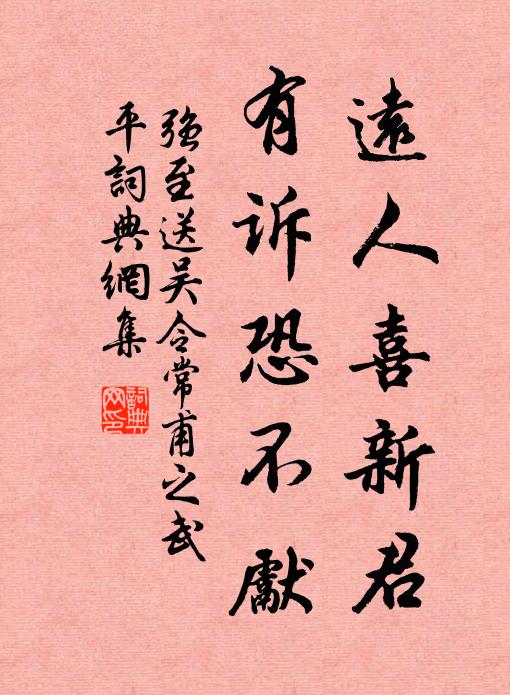 遠人喜新君
有訴恐不獻
強至送吳令常甫之武
平詞典網集
詞典
网